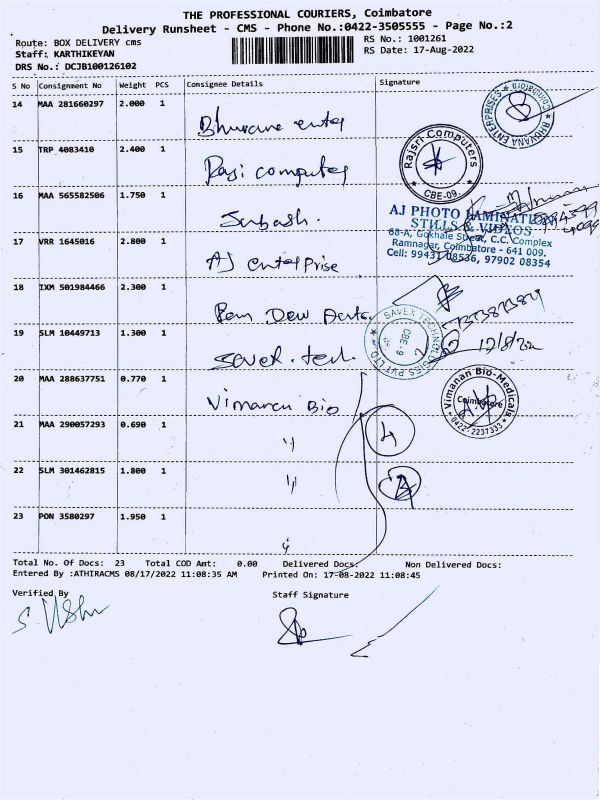 THE PROFESSIONAL COURIERS, Coimbatore
Delivery Runsheet - CMS - Phone No.:0422-3505555 - Page No.:2
Route: BOX DELIVERY cms
RS No.: 1001261
Staff: KARTHIKEYAN
RS Date: 17-Aug-2022
DRS No.: DCJB100126102
S No Consignment No Weight PCS Consignee Details Signature
14 MAA 281660297 2.000 1
BHUVANA ENTERPRISES ★ Coimbatore ★
15 TRP 4083410 2.400 1 Raji computer
Rajsri Computers
CBE-09.
16 MAA 565582506 1.750 1 Subash.
AJ PHOTO LAMINATION
STILLS & VIDEOS
68-A, Gokhale Street, C.C. Complex
Ramnagar, Coimbatore - 641 009.
Cell: 99431 08536, 97902 08354
17 VRR 1645016 2.800 1 AJ enterprise
18 IXM 501984466 2.300 1
19 SLM 10449713 1.300 1 Savex.tech
SAVEX TECHNOLOGIES PVT LTD ★
CBE-9
17/8/22
20 MAA 288637751 0.770 1 Vimanan Bio
Vimanan Bio-Medicals
Coimbatore
0422-2237333
21 MAA 290057293 0.690 1 " 4
22 SLM 301462815 1.800 1 "
23 PON 3580297 1.950 1 "
Total No. Of Docs: 23 Total COD Amt: 0.00 Delivered Docs: Non Delivered Docs:
Entered By :ATHIRACMS 08/17/2022 11:08:35 AM Printed On: 17-08-2022 11:08:45
Verified By Staff Signature